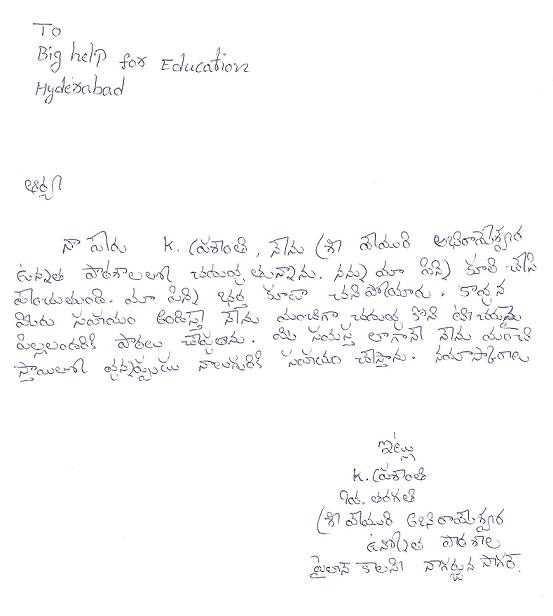 To
Big help for Education
Hyderabad
ఆర్యా
నా పేరు K. ప్రశాంతి, నేను శ్రీ పైమురి అభిరామేశ్వర
ఉన్నత పాఠశాలలో చదువు తున్నాను. నన్ను మా పిన్ని కూలి చేసి
పెంచుతుంది. మా పిన్ని భర్త కూడా చనిపోయారు. కావున
మీరు సహాయం అందిస్తే నేను మంచిగా చదువు కొని టీచరునై
పిల్లలందరికి పాఠాలు చెప్పతాను. మీ సమస్త లాగానే నేను మంచి
స్తాయిలో వున్నప్పుడు నాలుగురికి సహాయం చేస్తాను. నమాస్కారాలు
ఇట్లు
K. ప్రశాంతి
తరగతి
శ్రీ పైమురి అభిరామేశ్వర
ఉన్నత పాఠశాల
పైలాన్ కాలని నాగర్జున సాగర్.